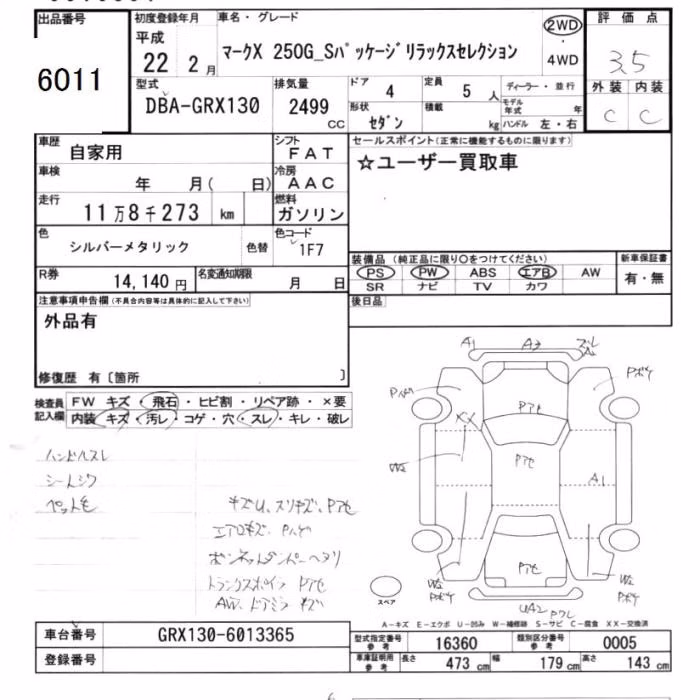 出品番号
6011
初度登録年月
平成
22 2 月
車名・グレード
マークX 250G_Sパッケージリラックスセレクション
2WD
・
4WD
評価点
3.5
型式
DBA-GRX130
排気量
2499
CC
ドア 4
定員 5 人
ディーラー・並行
形状 セダン
積載 kg
モデル年式 年
ハンドル 左・右
外装 内装
C C
車歴 自家用
シフト FAT
車検 年 月( 日)
冷房 AAC
走行 11万8千273 km
燃料 ガソリン
色 シルバーメタリック 色替
色コード 1F7
R券 14,140円
名変通知期限 月 日
セールスポイント(正常に機能するものに限ります)
☆ユーザー買取車
装備品(純正品に限り○をつけてください)
新車保証書
PS PW ABS エアB AW
SR ナビ TV カワ
有・無
後日品
注意事項申告欄(不具合内容等は具体的に記入して下さい)
外品有
修復歴 有〔箇所 〕
検査員記入欄
FW キズ・飛石・ヒビ割・リペア跡・×要
内装 キズ・汚レ・コゲ・穴・スレ・キレ・破レ
ハンドルスレ
シートシワ
ペット毛
キズU、スリキズ、Pアセ
エアロキズ、Pハゲ
ボンネットダンパーヘタリ
トランクスポイラ Pアセ
AW、ドアミラ キズ
A1 A3 ズレ
Pハゲ
Pボケ
Pアセ
XX
Pアセ
W2
A1
Pアセ
W2
Pボケ
W2
Pボケ
UA2 Pワレ
スペア
A-キズ E-エクボ U-凹み W-補修跡 S-サビ C-腐食 XX-交換済
車台番号 GRX130-6013365
登録番号
型式指定番号 参考 16360
類別区分番号 参考 0005
車庫証明用 参考
長さ 473 cm 幅 179 cm 高さ 143 cm